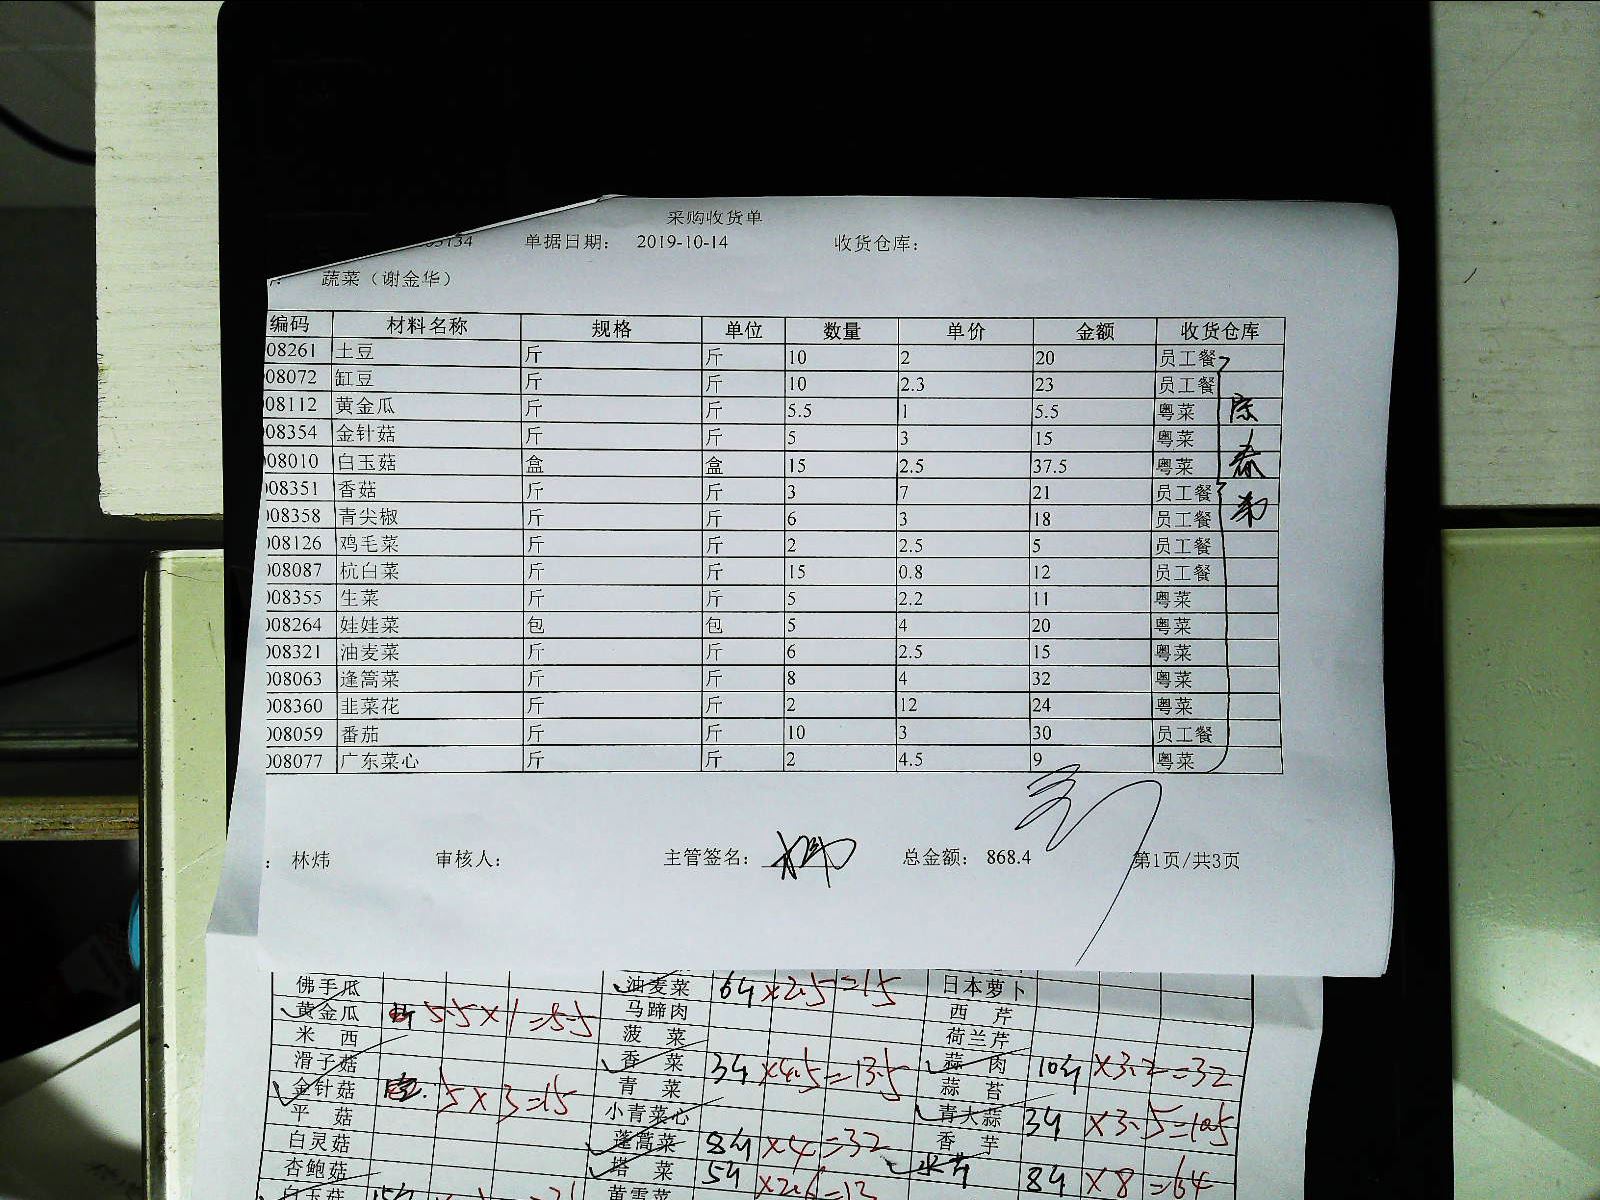 采购收货单
单据日期： 2019-10-14 收货仓库：
蔬菜（谢金华）
编码 材料名称 规格 单位 数量 单价 金额 收货仓库
08261 土豆 斤 斤 10 2 20 员工餐
08072 缸豆 斤 斤 10 2.3 23 员工餐
08112 黄金瓜 斤 斤 5.5 1 5.5 粤菜
08354 金针菇 斤 斤 5 3 15 粤菜
08010 白玉菇 盒 盒 15 2.5 37.5 粤菜
08351 香菇 斤 斤 3 7 21 员工餐
08358 青尖椒 斤 斤 6 3 18 员工餐
08126 鸡毛菜 斤 斤 2 2.5 5 员工餐
08087 杭白菜 斤 斤 15 0.8 12 员工餐
08355 生菜 斤 斤 5 2.2 11 粤菜
08264 娃娃菜 包 包 5 4 20 粤菜
08321 油麦菜 斤 斤 6 2.5 15 粤菜
08063 逢篙菜 斤 斤 8 4 32 粤菜
08360 韭菜花 斤 斤 2 12 24 粤菜
08059 番茄 斤 斤 10 3 30 员工餐
08077 广东菜心 斤 斤 2 4.5 9 粤菜
： 林炜 审核人： 主管签名： 总金额： 868.4 第1页/共3页
佛手瓜 油麦菜 6斤×2.5=15 日本萝卜
黄金瓜 5.5×1=5.5 马蹄肉 西芹
米西 菠菜 荷兰芹
滑子菇 香菜 3斤×4.5=13.5 蒜肉 10斤×3.2=32
金针菇 5×3=15 青菜 蒜苔
平菇 小青菜心 青大蒜 3斤×3.5=10.5
白灵菇 蓬蒿菜 8斤×4=32 香芋
杏鲍菇 塔菜 5斤×2.6=13 8斤×8=64
白玉菇 黄雪菜